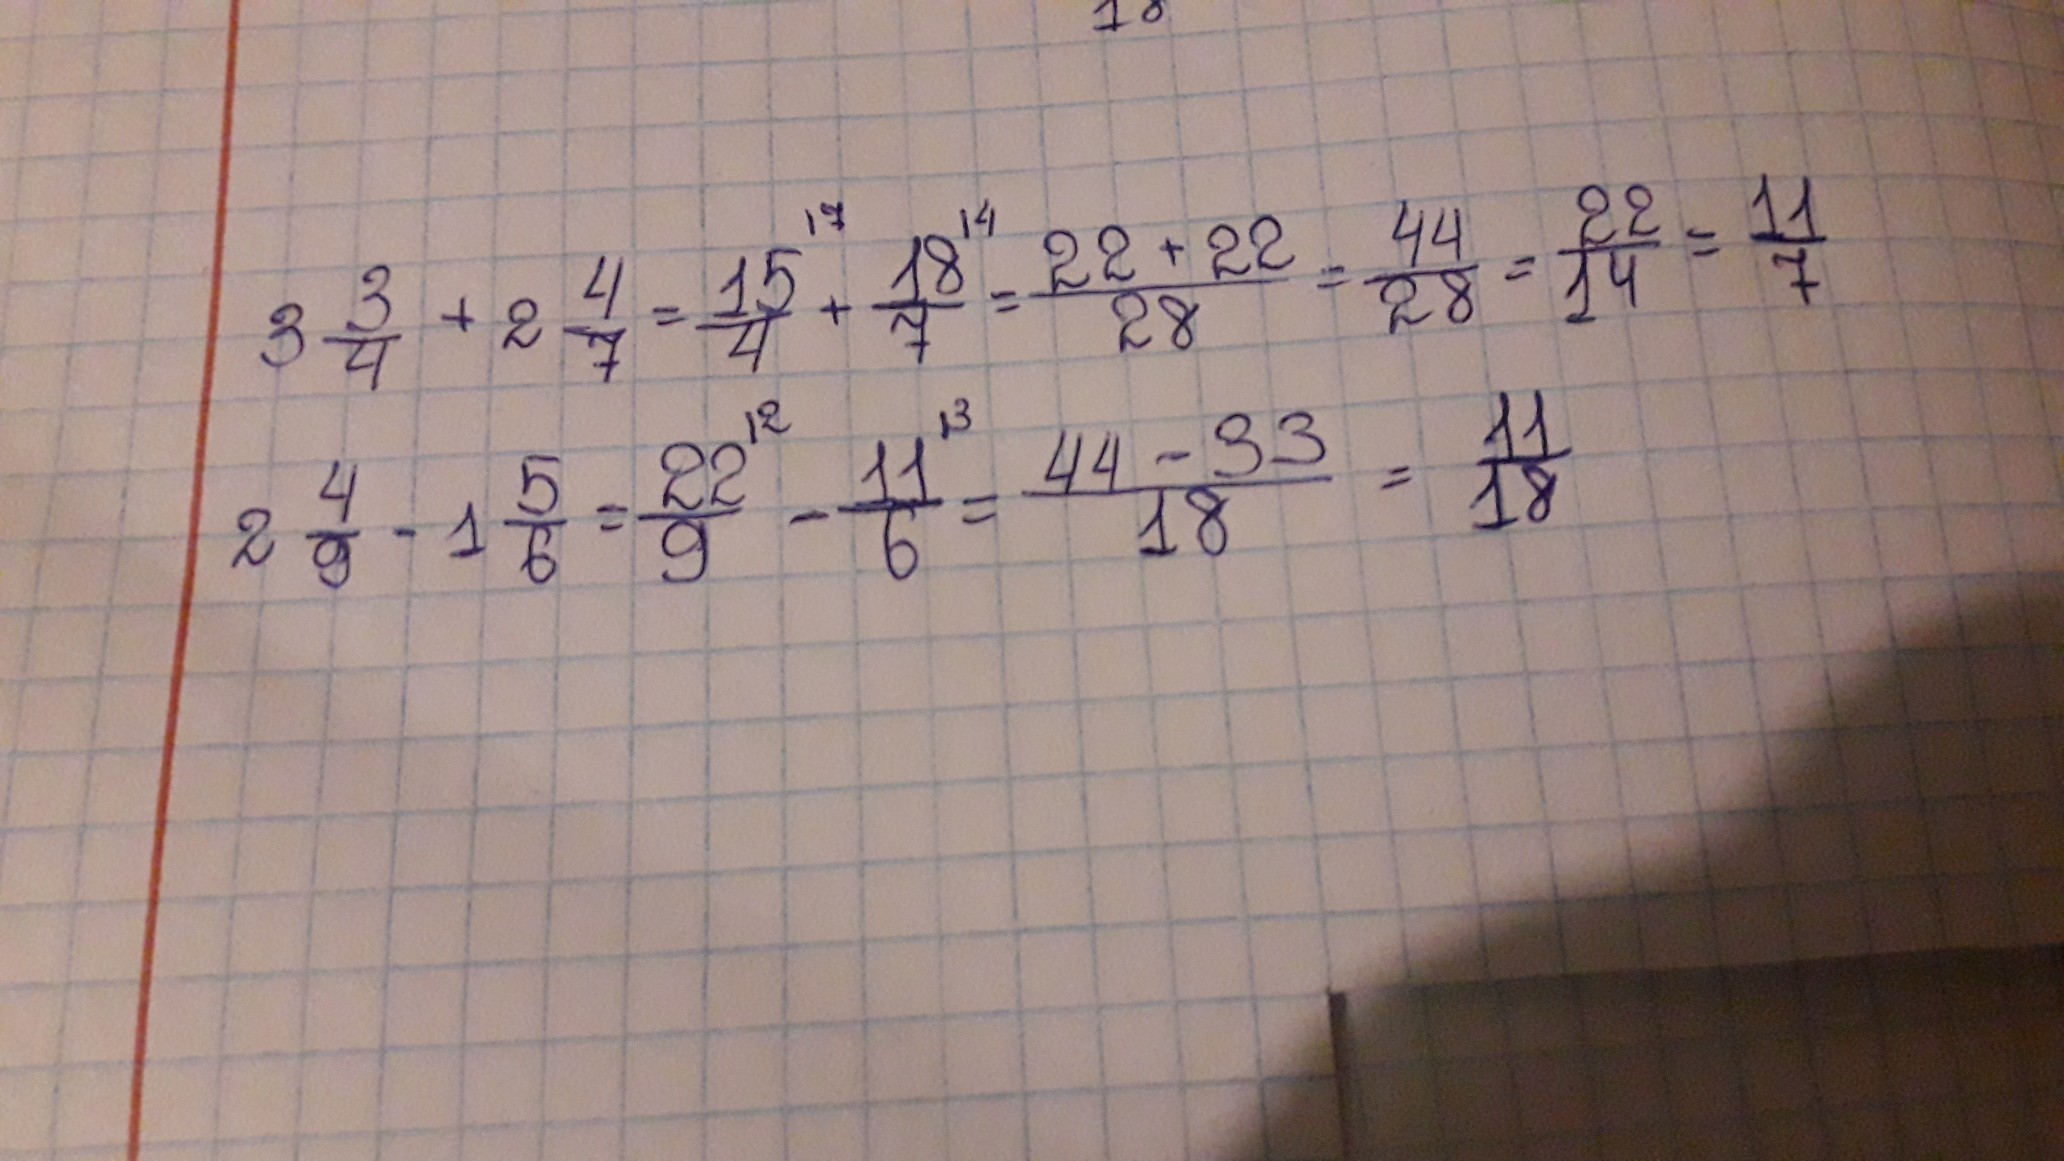 18
3 3/4 + 2 4/7 = 15/4 |7 + 18/7 |4 = 22+22/28 = 44/28 = 22/14 = 11/7
2 4/9 - 1 5/6 = 22/9 |2 - 11/6 |3 = 44-33/18 = 11/18